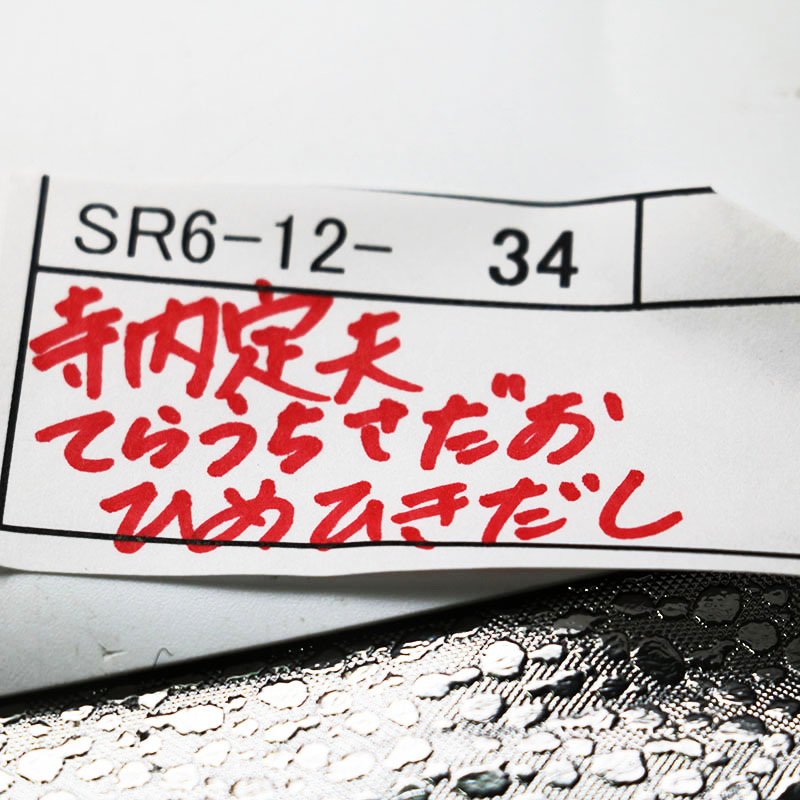 SR6-12- 34
寺内定夫
てらうちさだお
ひめひきだし